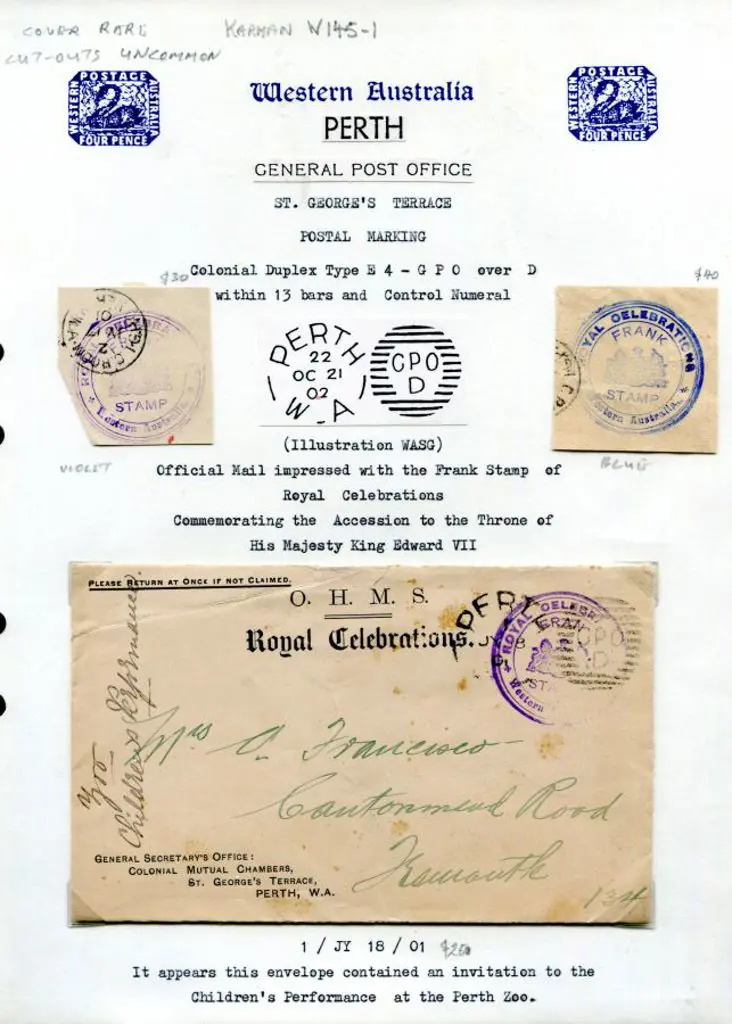 COVER RARE KARMAN W145-1
CUT-OUTS UNCOMMON
WESTERN POSTAGE AUSTRALIA FOUR PENCE
Western Australia
WESTERN POSTAGE AUSTRALIA FOUR PENCE
PERTH
GENERAL POST OFFICE
ST. GEORGE'S TERRACE
POSTAL MARKING
$30
$40
Colonial Duplex Type E 4 - G P O over D
within 13 bars and Control Numeral
STAMP
Western Australia
PERTH
22
OC 21
02
W-A
GPO
D
ROYAL CELEBRATIONS
FRANK
STAMP
Western Australia
(Illustration WASG)
VIOLET
BLUE
Official Mail impressed with the Frank Stamp of
Royal Celebrations
Commemorating the Accession to the Throne of
His Majesty King Edward VII
PLEASE RETURN AT ONCE IF NOT CLAIMED.
O. H. M. S.
Royal Celebrations.
PERT
ROYAL CELEBRA
FRAN
STA
Western
GPO
D
Zoo
Children's Performance
Mrs A. Francisco
Cantonment Road
Fremantle
134
GENERAL SECRETARY'S OFFICE:
COLONIAL MUTUAL CHAMBERS,
ST. GEORGE'S TERRACE,
PERTH, W.A.
1 / JY 18 / 01 $250
It appears this envelope contained an invitation to the
Children's Performance at the Perth Zoo.